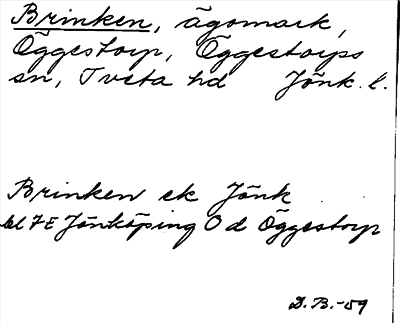 Brinken, ägomark,
Öggestorp, Öggestorps
sn, Tveta hd Jönk. l.
Brinken ek Jönk
bl 7E Jönköping O d Öggestorp
D. B. -59